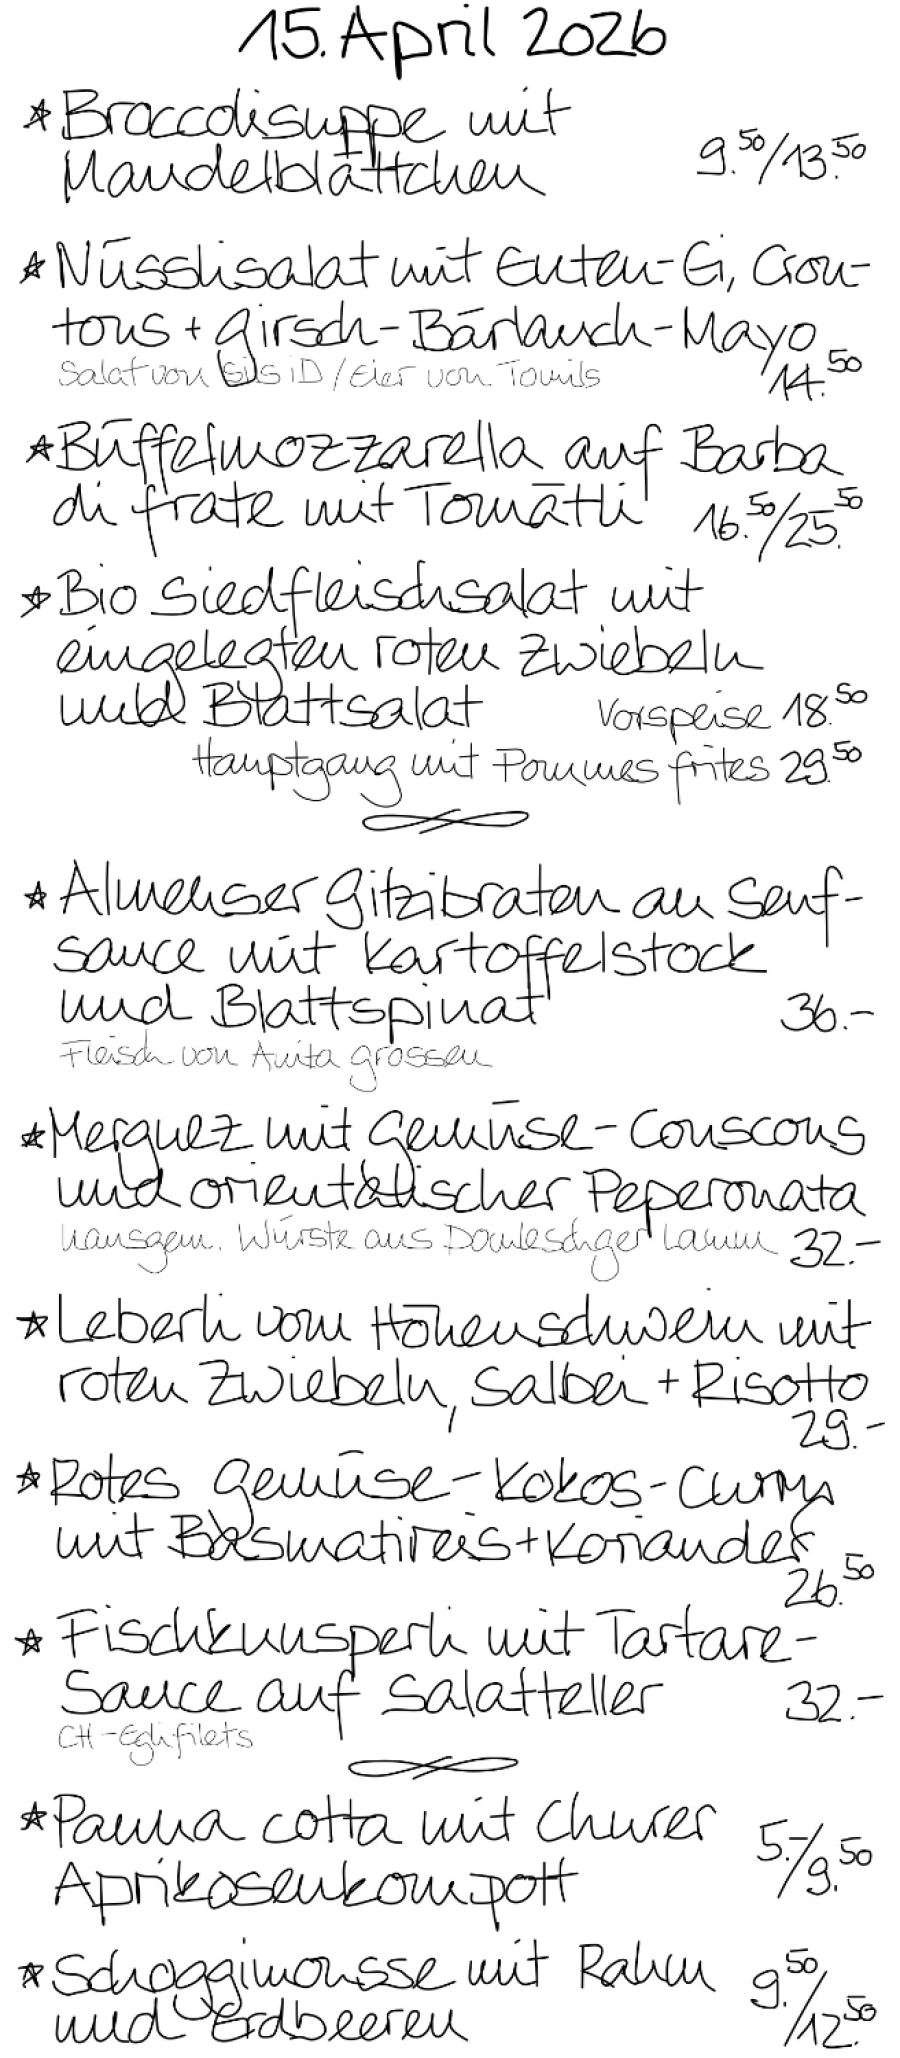 15. April 2026
* Broccolisuppe mit
Mandelblättchen 9.50/13.50
* Nüsslisalat mit Enten-Ei, Crou-
tons + Girsch-Bärlauch-Mayo
Salat von Sils iD / Eier von Tomils 14.50
* Büffelmozzarella auf Barba
di frate mit Tomätli 16.50/25.50
* Bio Siedfleischsalat mit
eingelegten roten Zwiebeln
und Blattsalat Vorspeise 18.50
Hauptgang mit Pommes frites 29.50
* Almenser Gitzibraten an Senf-
sauce mit Kartoffelstock
und Blattspinat 36.-
Fleisch von Anita Grossen
* Merguez mit Gemüse-Couscous
und orientalischer Peperonata
hausgem. Würste aus Domleschger Lamm 32.-
* Leberli vom Höhenschwein mit
roten Zwiebeln, Salbei + Risotto
29.-
* Rotes Gemüse-Kokos-Curry
mit Basmatireis + Koriander
26.50
* Fischknusperli mit Tartare-
Sauce auf Salatteller 32.-
CH-Eglifilets
* Panna cotta mit Churer
Aprikosenkompott 5.-/9.50
* Schoggimousse mit Rahm
und Erdbeeren 9.50/12.50